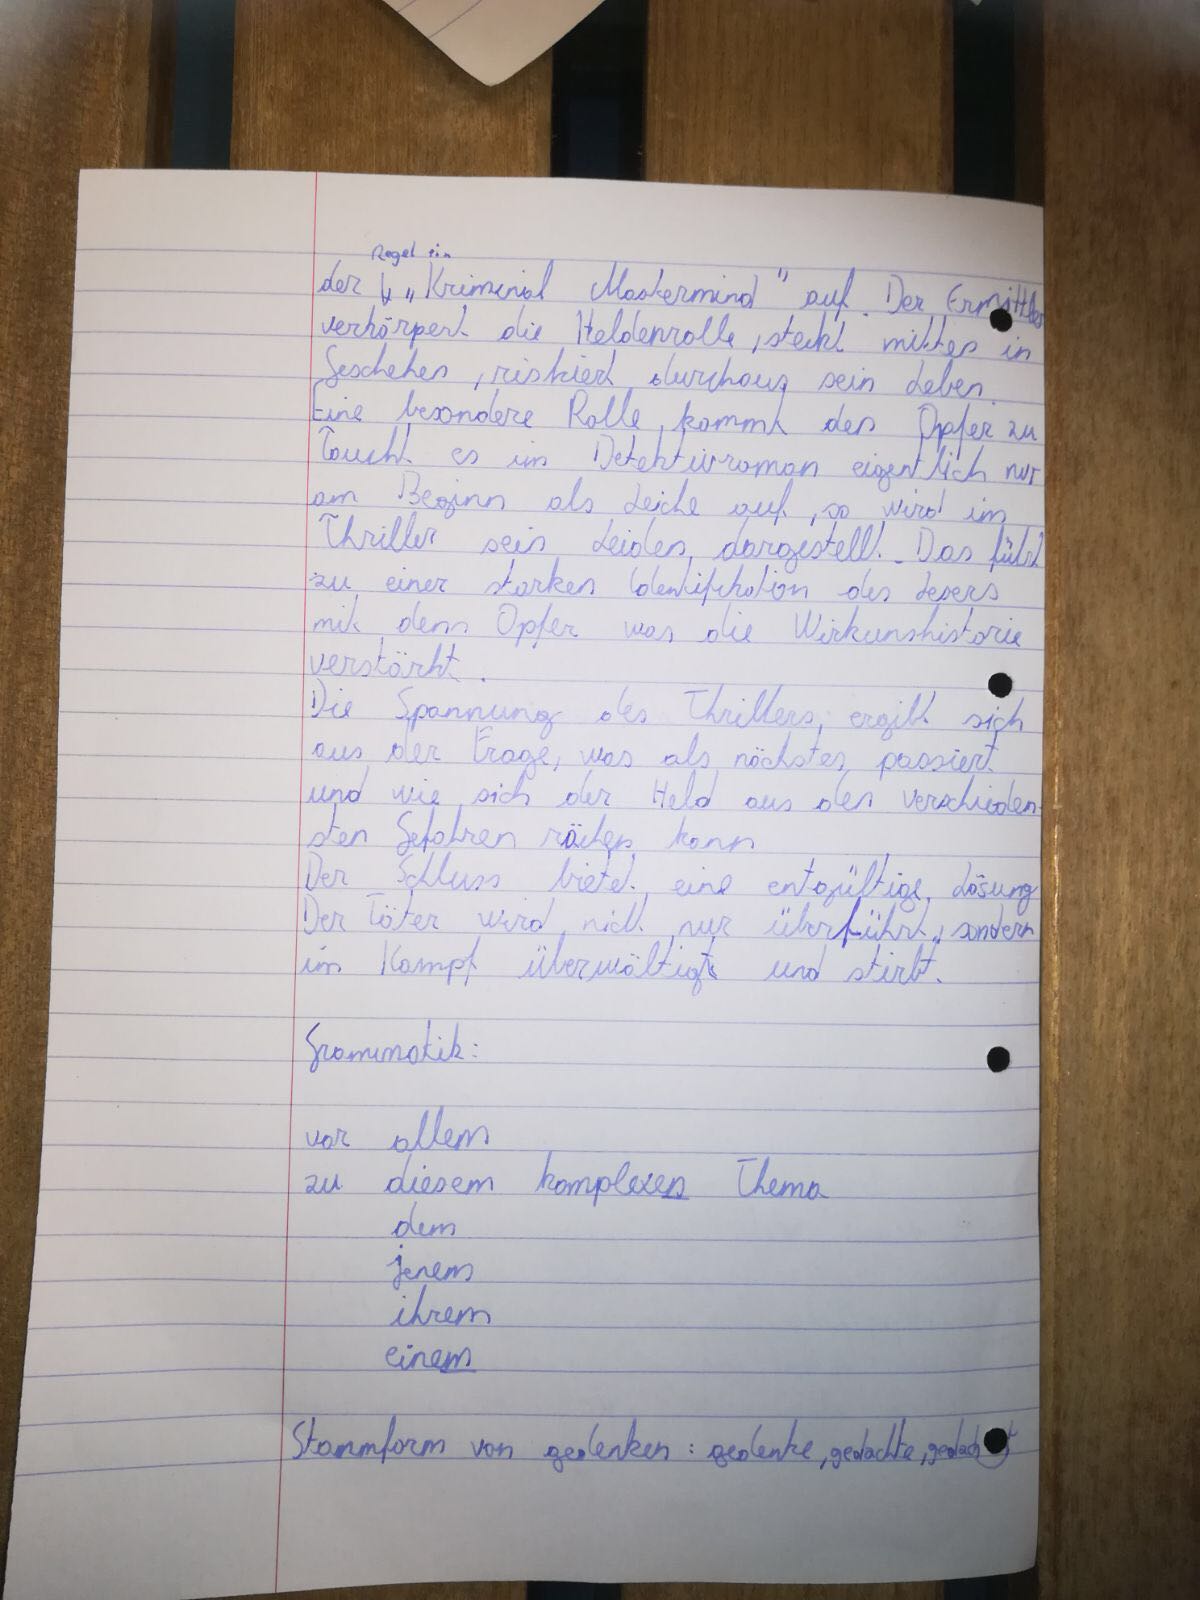 Regel ein
der „Kriminal Mastermind" auf. Der Ermittler
verkörpert die Heldenrolle, steckt mitten in
Geschehen, riskiert durchaus sein Leben.
Eine besondere Rolle kommt den Opfer zu
Taucht es im Detektivroman eigentlich nur
am Beginn als Leiche auf, so wird im
Thriller sein Leiden dargestellt. Das führt
zu einer starken Identifikation des Lesers
mit dem Opfer was die Wirkunshistorie
verstärkt.
Die Spannung des Thrillers, ergibt sich
aus der Frage, was als nächstes passiert
und wie sich der Held aus den verschieden-
sten Gefahren rächen kann
Der Schluss bietet eine entgültige Lösung
Der Täter wird nicht nur überführt, sondern
im Kampf überwältigt und stirbt.
Grammatik:
vor allem
zu diesem komplexen Thema
dem
jenem
ihrem
einem
Stammform von gedenken: gedenke, gedachte,